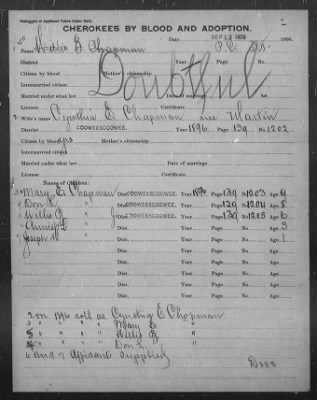 CHEROKEES BY BLOOD AND ADOPTION.
Date SEP 13 1900 1900.
Name Willis G. Chapman P.O.
District Year Page No.
Citizen by blood Mother's citizenship
Doubtful
Intermarried citizen
Married under what law Date of marriage
License Certificate
Wife's name Cynthia E. Chapman nee Martin
District COOWEESCOOWEE. Year 1896 Page 139 No. 1202
Citizen by blood yes Mother's citizenship
Intermarried citizen
Married under what law Date of marriage
License Certificate
Names of Children:
Mary E. Chapman Dist. COOWEESCOOWEE. Year 1896 Page 139 No. 1203 Age 9
Don L. " Dist. COOWEESCOOWEE. Year " Page 139 No. 1204 Age 8
Willis G. " Dist. COOWEESCOOWEE. Year " Page 139 No. 1205 Age 6
" Dist. Year Page No. Age 3
Joseph M. " Dist. Year Page No. Age 1
Dist. Year Page No. Age
Dist. Year Page No. Age
Dist. Year Page No. Age
Dist. Year Page No. Age
2 on 1896 roll as Cynthia E. Chapman
3 " " " Mary E. "
" " " Willis G. "
4 " " " Don L. "
6 and 7 Affidavit supplied
D383